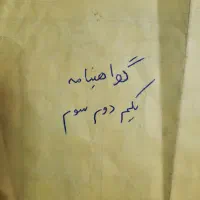 گواهینامه
یکم دوم سوم